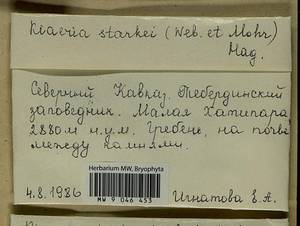 Kiaeria starkei (Web. et Mohr)
Hag.
Северный Кавказ. Тебердинский
заповедник. Малая Хатипара
2880 м н.у.м. Гребень, на почве
между камнями.
Herbarium MW, Bryophyta
MW 9 046 453
4.8.1986 Игнатова Е.А.